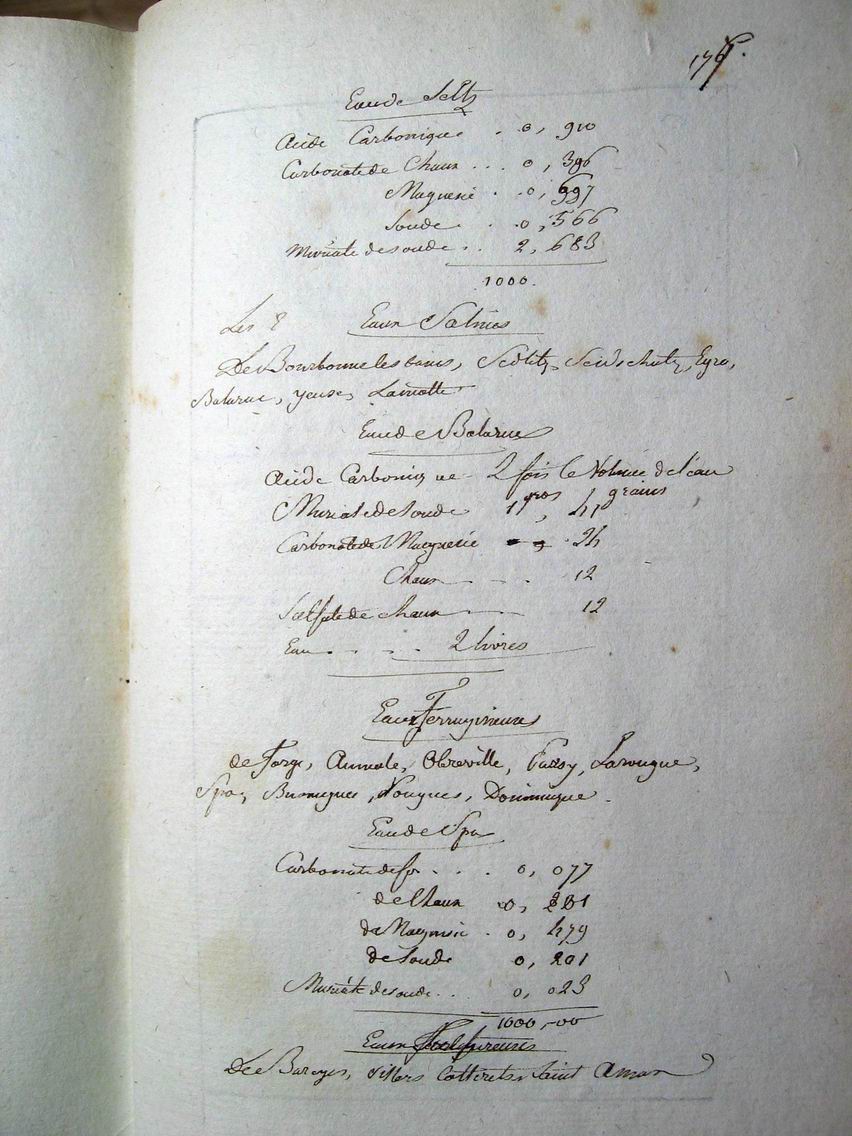 Eau de Seltz
Acide Carbonique . 0, 910
Carbonate de Chaux ... 0, 396
Magnesie . 0, 997
Soude . 0, 566
Muriate de soude .. 2, 683
1000.
Les Eaux Salines
De Bourbonne les bains, Sedlitz, Seidschutz, Egra,
Balaruc, yeuse, Lamotte
Eau de Balaruc
Acide Carbonique 2 fois le Volume de l'eau
Muriate de Soude 1 gros, 41 grains
Carbonate de Magnesie 24
Chaux . . . 12
Sulfate de chaux 12
Eau . . . . 2 livres
Eaux Ferrugineuses
de Forge, Aumale, Passy, Larougue,
Spa, Vougues, Dominique.
Eau de Spa
Carbonate de fer . . . 0, 077
de Chaux 0,
de Magnesie . 0, 479
de Soude 0, 201
Muriate de soude . . . 0, 023
1000,-00
Eaux Sulfureuses
De Bareges, Villers Cotterets, Saint Aman